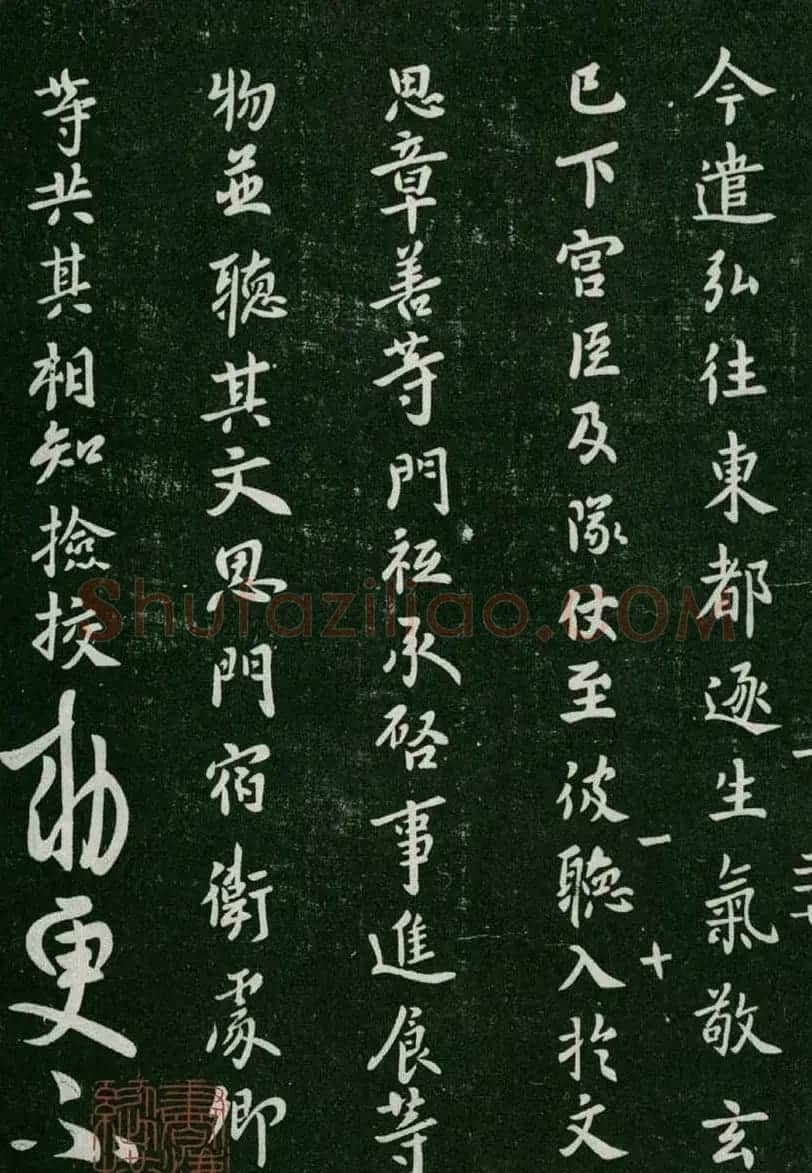 今遣弘往東都逐生氣敬玄
已下宫臣及隊仗至彼聽入於文
思章善等門祗承啓事進食等
物並聽其文思門宿衛處卿
等共其相知撿挍勅更不
一
十
Shufaziliao.COM